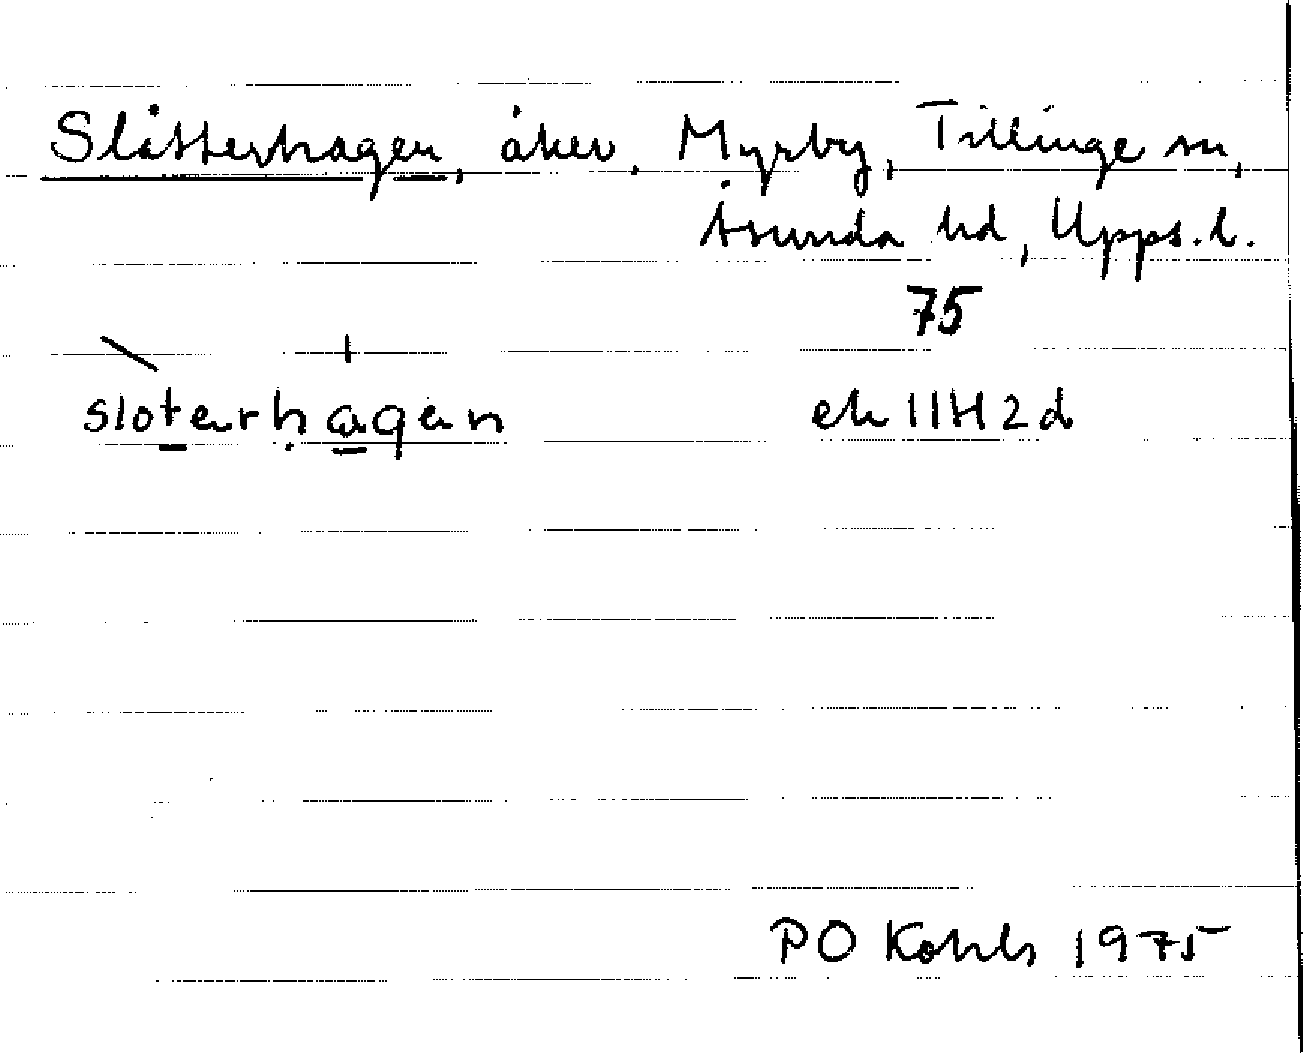 Slåtterhagen, åker, Myrby, Tillinge sn,
Åsunda hd, Upps.l.
75
sloterhagen
ek 11H2d
PO Kohls 1975